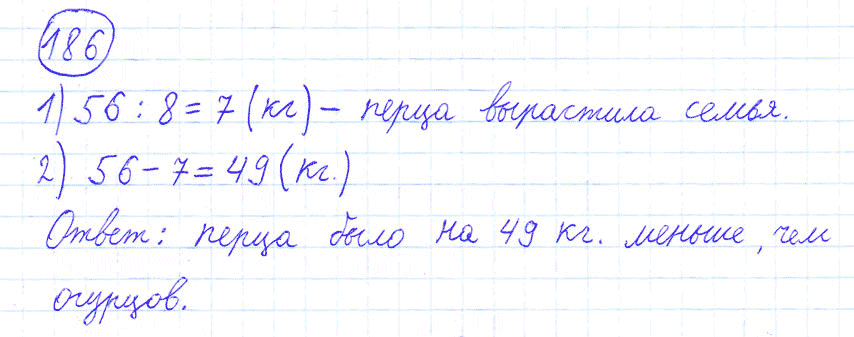 186
1) 56 : 8 = 7 (кг) – перца вырастила семья.
2) 56 – 7 = 49 (кг.)
Ответ: перца было на 49 кг. меньше, чем
огурцов.